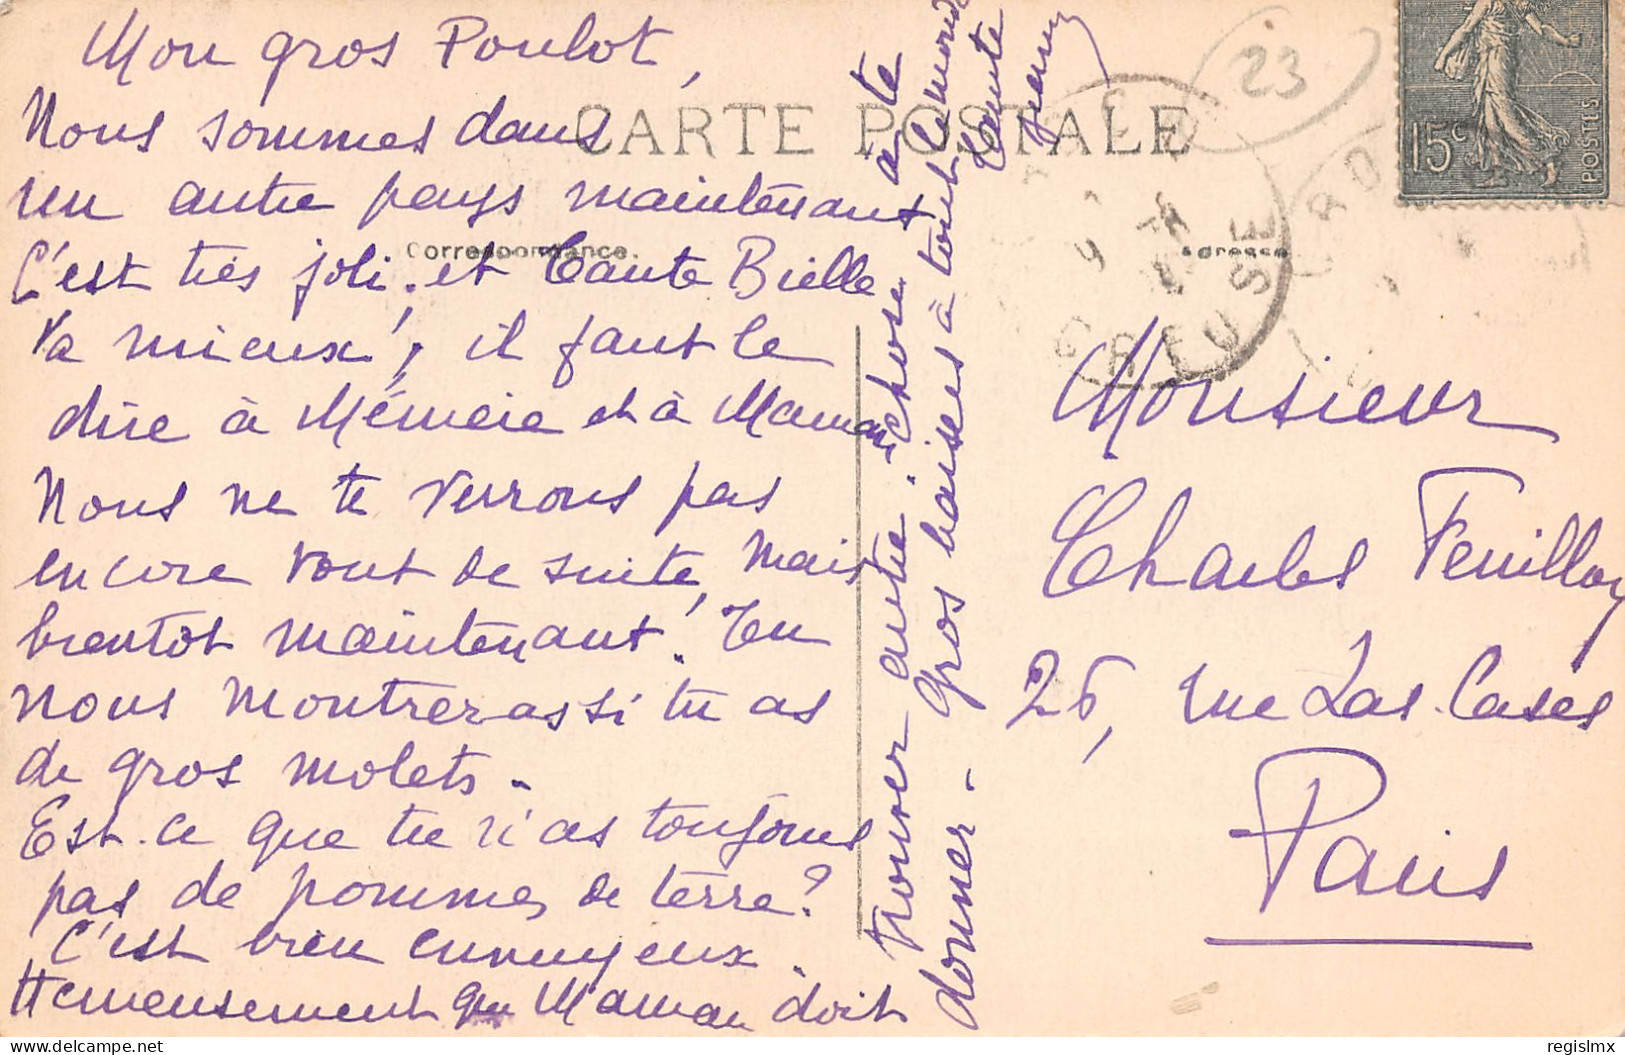 Mon gros Poulot,
Nous sommes dans
un autre pays maintenant
C'est très joli. et Tante Bielle
va mieux, il faut le
dire à Mémère et à Maman
Nous ne te verrons pas
encore tout de suite, mais
bientôt maintenant. Tu
nous montreras si tu as
de gros molets.
Est-ce que tu n'as toujours
pas de pommes de terre?
C'est bien ennuyeux.
Heureusement que Maman doit
trouver autre chose à te
donner - gros baisers à tout le monde
Tante
CARTE POSTALE
Correspondance.
Adresse
23
15c
POSTES
CREUSE
Monsieur
Charles Feuilloy
26, rue Las Cases
Paris
www.delcampe.net
regislmx